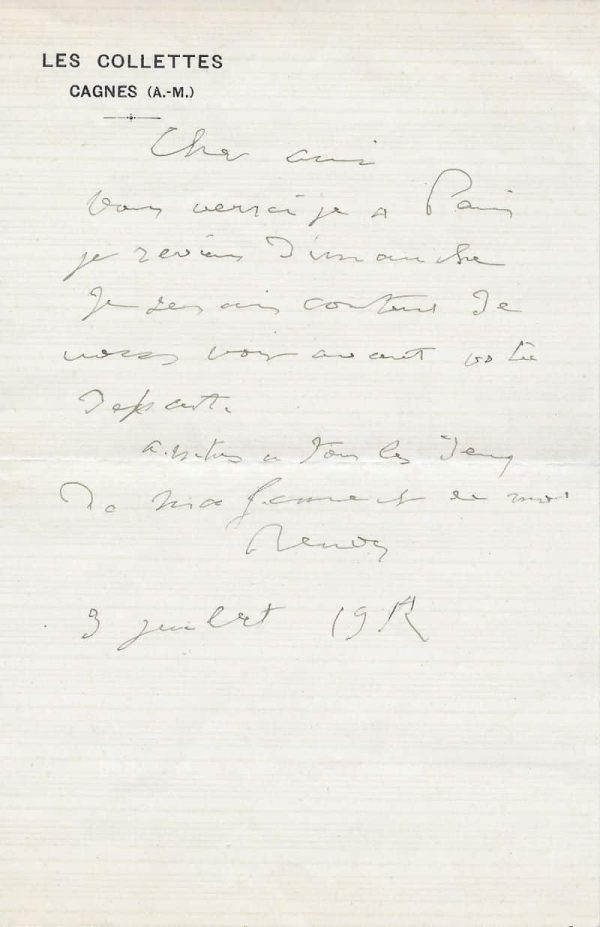 LES COLLETTES
CAGNES (A.-M.)
Cher ami
Vous verrai je a Paris
je reviens Dimanche
Je serais content de
vous voir avant votre
Depart.
amities a tous les deux
De ma femme et de moi
Renoir
3 juillet 191